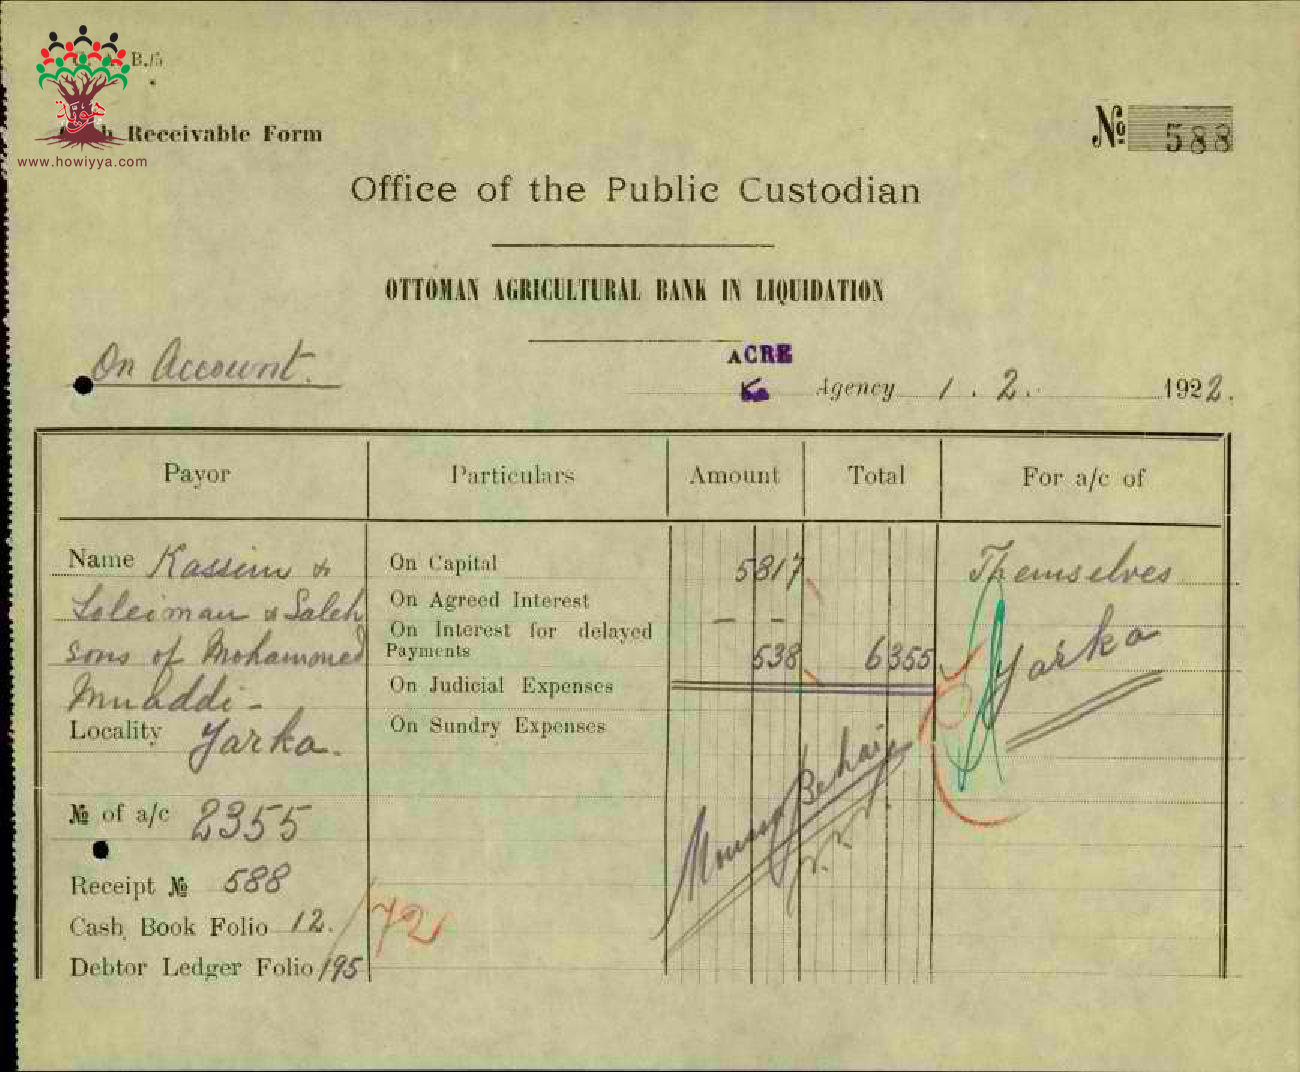 B./5
هوية
www.howiyya.com
Receivable Form
№ 588
Office of the Public Custodian
OTTOMAN AGRICULTURAL BANK IN LIQUIDATION
On Account.
ACRE
Agency 1.2. 1922.
Payor Particulars Amount Total For a/c of
Name Kassim & On Capital 5817 Themselves
Soleiman & Saleh On Agreed Interest
sons of Mohammed On Interest for delayed Payments 538 6355 Yarka
Muaddi - On Judicial Expenses
Locality Yarka. On Sundry Expenses
№ of a/c 2355
Receipt № 588
Cash Book Folio 12. /72
Debtor Ledger Folio 195